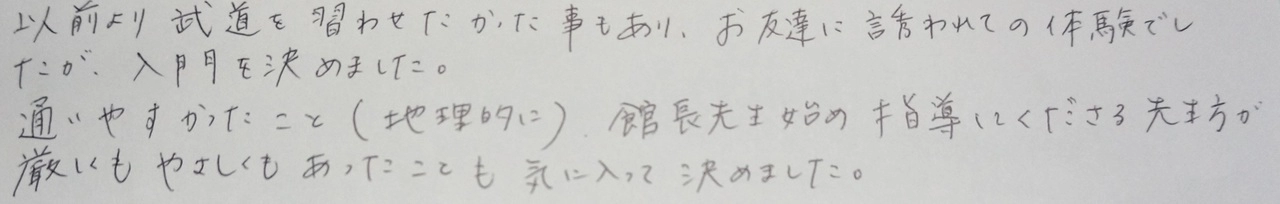 以前より武道を習わせたかった事もあり、お友達に誘われての体験でし
たが、入門を決めました。
通いやすかったこと(地理的に)、館長先生始め指導してくださる先生方が
厳しくもやさしくもあったことも気に入って決めました。